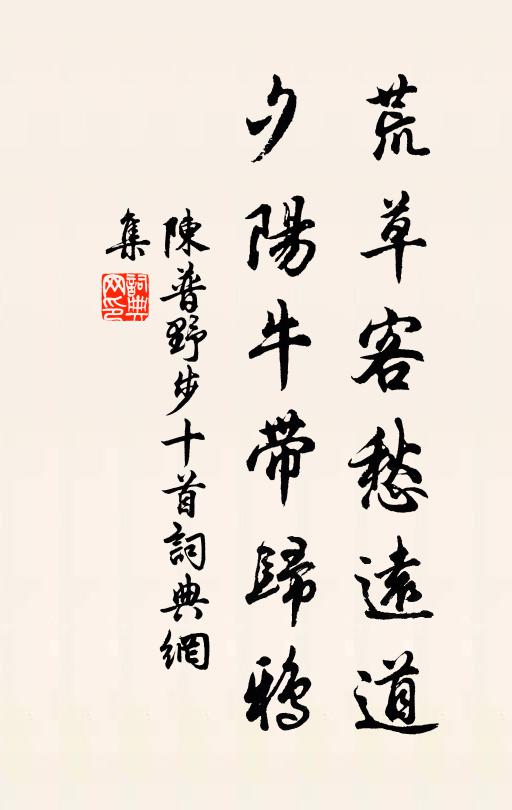 荒草客愁遠道
夕陽牛帶歸鴉
陳普野步十首詞典網
集
詞典
网印